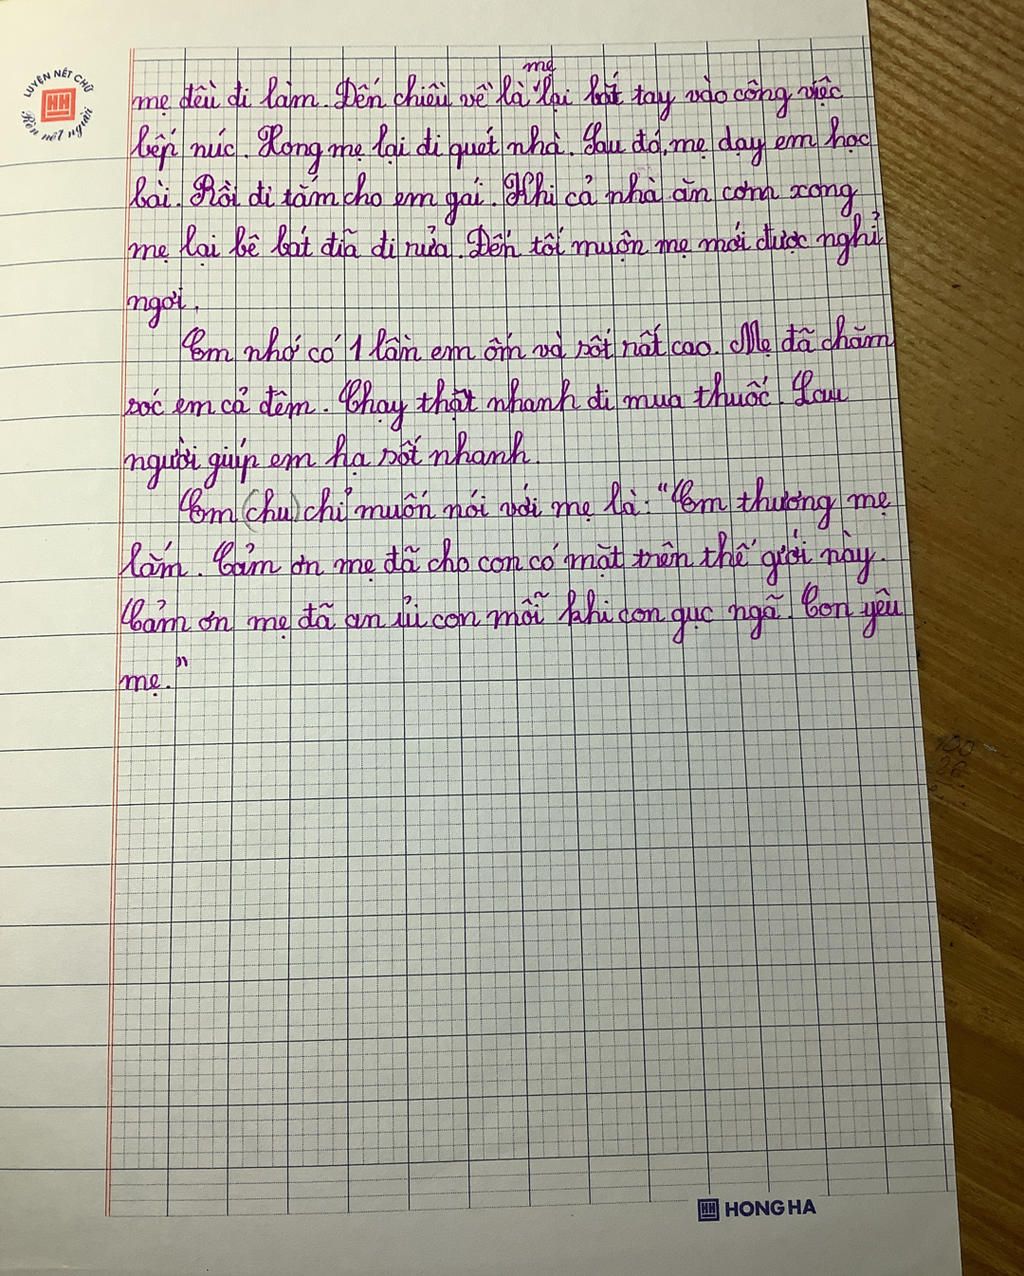 LUYỆN NÉT CHỮ
HH
Rèn nết người
mẹ
mẹ đều đi làm. Đến chiều về là lại bắt tay vào công việc
bếp núc. Xong mẹ lại đi quét nhà. Sau đó, mẹ dạy em học
bài. Rồi đi tắm cho em gái. Khi cả nhà ăn cơm xong
mẹ lại bê bát đĩa đi rửa. Đến tối muộn mẹ mới được nghỉ
ngơi.
Em nhớ có 1 lần em ốm và sốt rất cao. Mẹ đã chăm
sóc em cả đêm. Chạy thật nhanh đi mua thuốc. Lau
người giúp em hạ sốt nhanh.
Em (chu) chỉ muốn nói với mẹ là: "Em thương mẹ
lắm. Cảm ơn mẹ đã cho con có mặt trên thế giới này.
Cảm ơn mẹ đã an ủi con mỗi khi con gục ngã. Con yêu
mẹ."
100
HH HONG HA